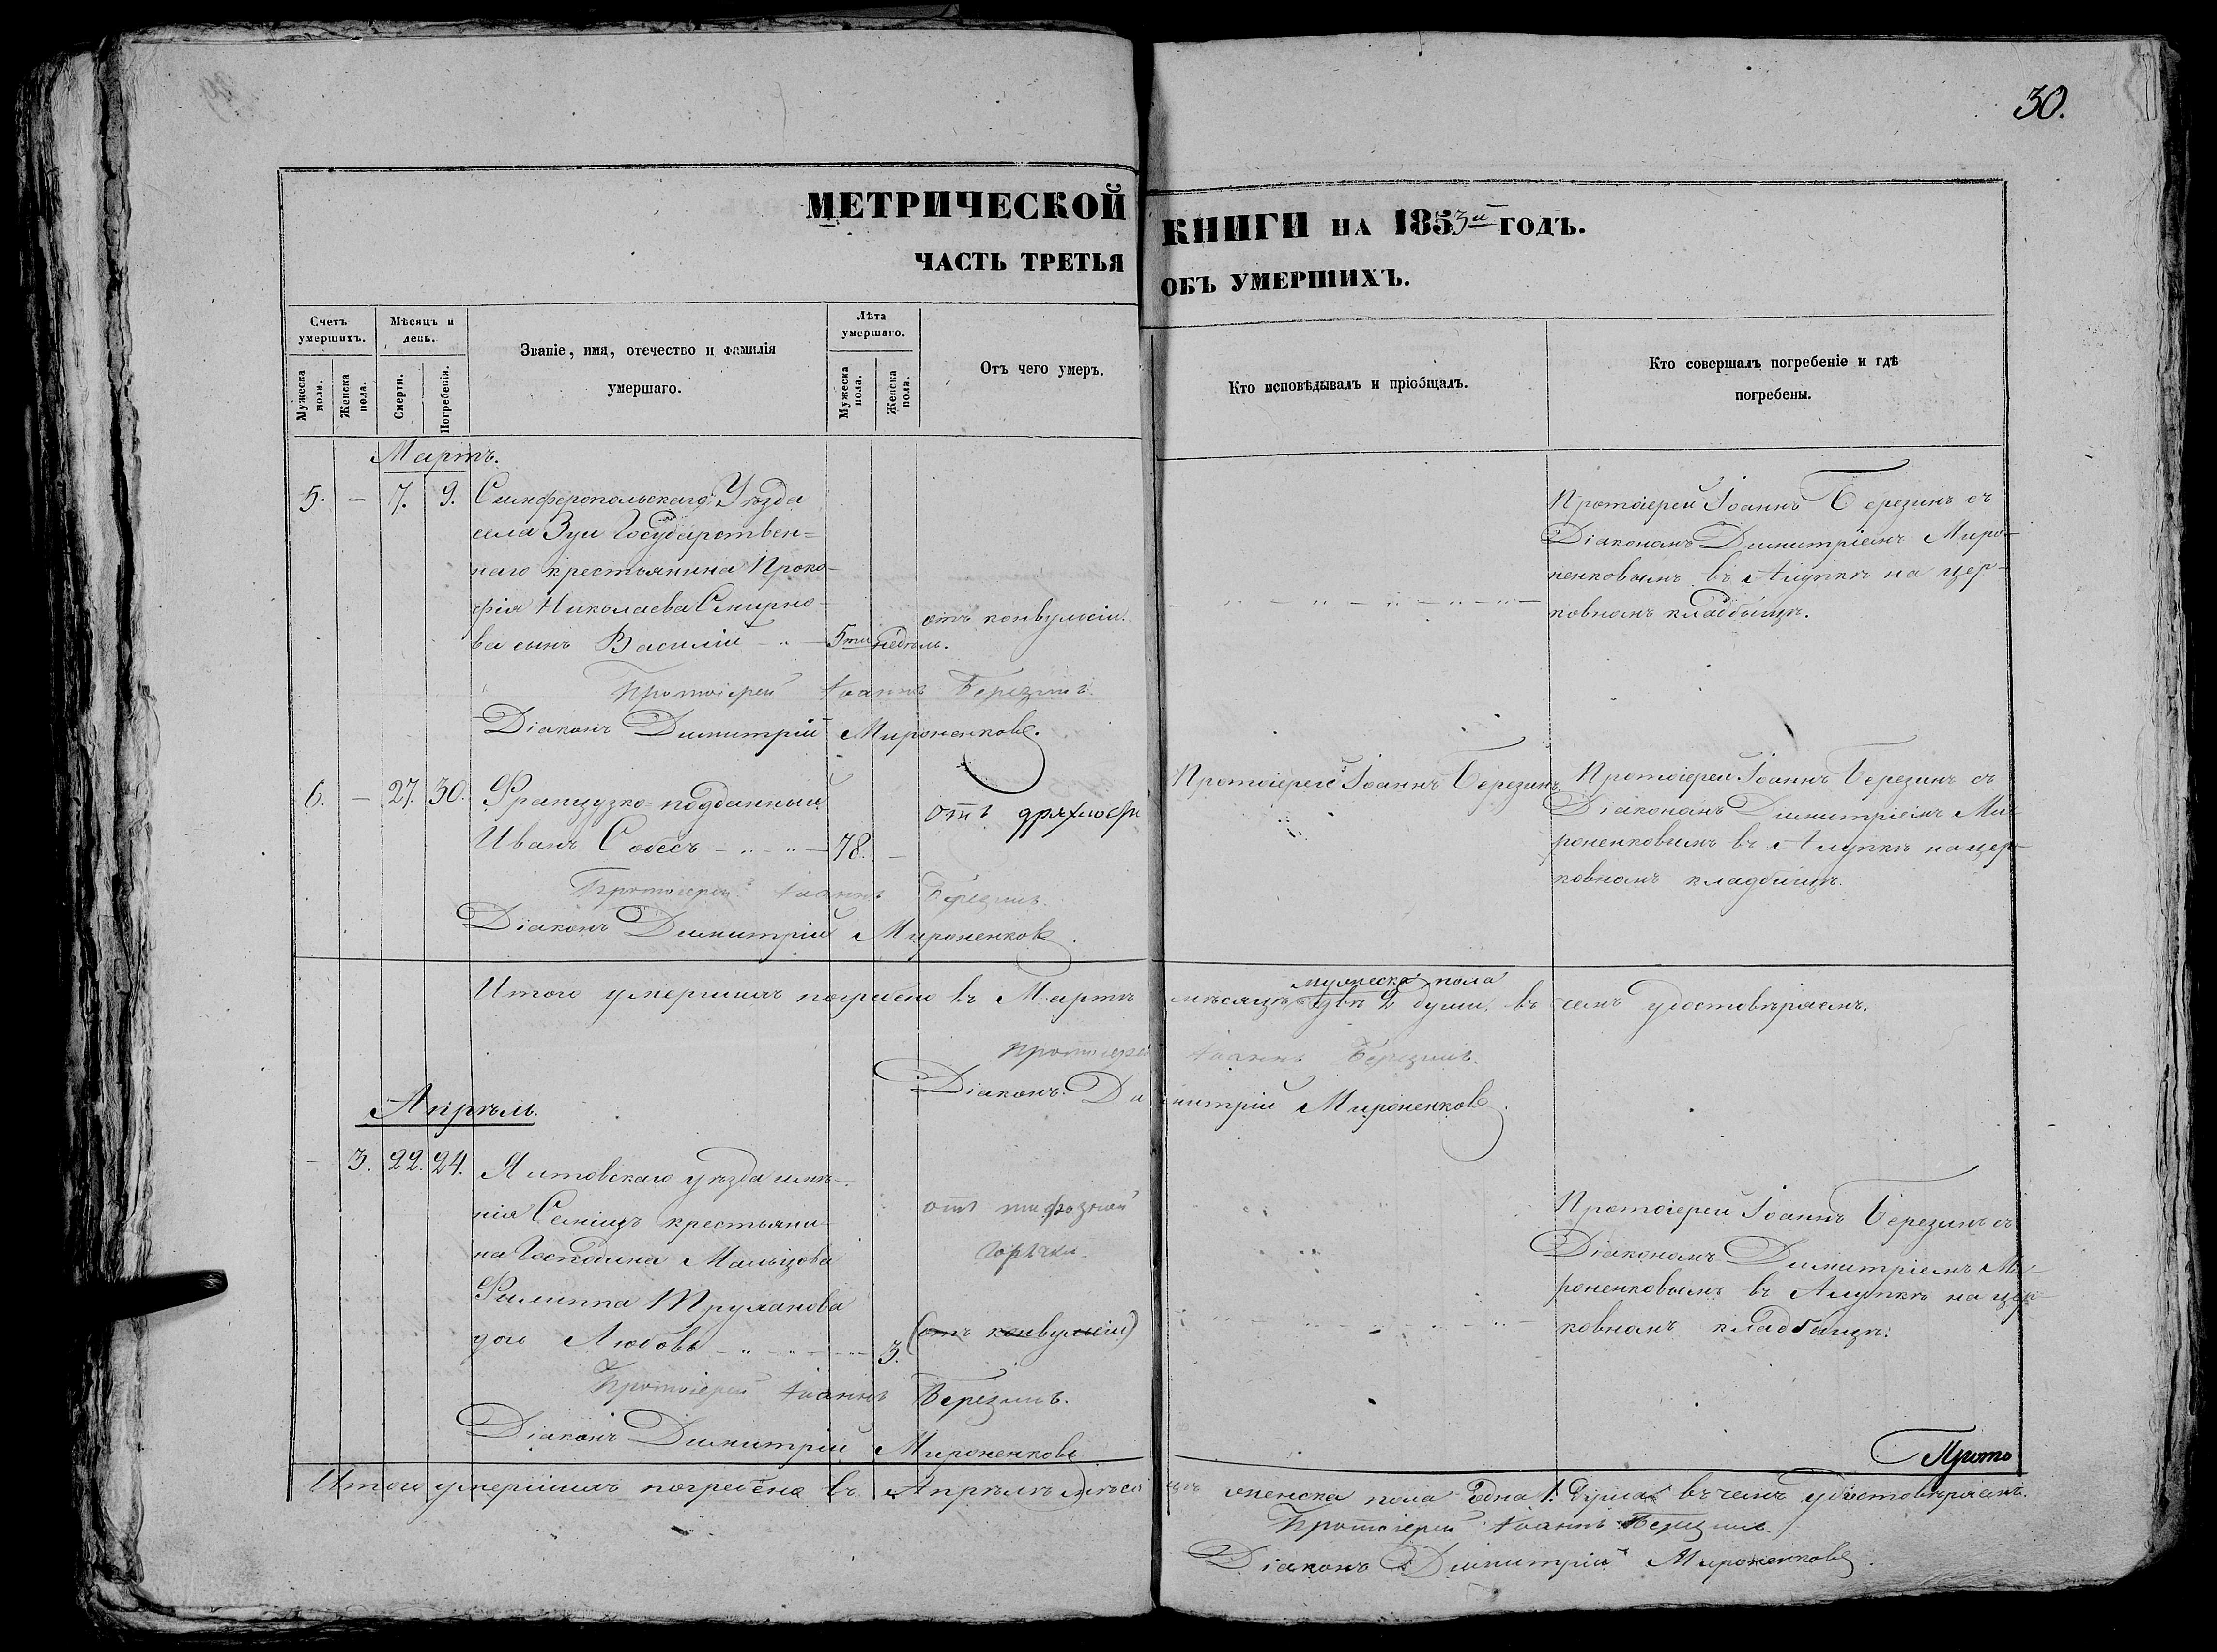 30.
МЕТРИЧЕСКОЙ КНИГИ НА 1853й ГОДЪ.
ЧАСТЬ ТРЕТЬЯ ОБЪ УМЕРШИХЪ.
Счетъ умершихъ.
Мужеска пола.
Женска пола.
Мѣсяцъ и день.
Смерти.
Погребенія.
Званіе, имя, отечество и фамилія
умершаго.
Лѣта умершаго.
Мужеска пола.
Женска пола.
Отъ чего умеръ.
Кто исповѣдывалъ и пріобщалъ.
Кто совершалъ погребеніе и гдѣ
погребены.
Мартъ.
5. — 7. 9. Симферопольскаго Уѣзда
села Зуи Государствен=
наго крестьянина Проко-
фія Николаева Смирно-
ва сынъ Василій
5ти недѣль.
отъ конвульсіи.
Протоіерей Іоаннъ Березинъ съ
Діакономъ Димитріемъ Миро-
ненковымъ въ Алупкѣ на цер-
ковномъ кладбищѣ.
Протоіерей Іоаннъ Березинъ.
Діаконъ Димитрій Мироненковъ.
6. — 27. 30. Французко-подданный
Иванъ Собесъ — 78. —
отъ дряхлости
Протоіерей Іоаннъ Березинъ.
Протоіерей Іоаннъ Березинъ съ
Діакономъ Димитріемъ Ми-
роненковымъ въ Алупкѣ на цер-
ковномъ кладбищѣ.
Протоіерей Іоаннъ Березинъ.
Діаконъ Димитрій Мироненковъ.
мужеска пола
Итого умершихъ погребено въ Мартѣ мѣсяцѣ двѣ 2 души, въ семъ удостовѣряемъ.
Протоіерей Іоаннъ Березинъ.
Діаконъ Димитрій Мироненковъ.
Апрѣль.
— 3. 22. 24. Ялтовскаго уѣзда имѣ-
нія Семіизъ крестьяни-
на Господина Мальцова
Филиппа Труханова
дочь Любовь — 3.
отъ тифозной
горячки.
(отъ конвульсіи)
Протоіерей Іоаннъ Березинъ съ
Діакономъ Димитріемъ Ми-
роненковымъ въ Алупкѣ на цер-
ковномъ кладбищѣ.
Протоіерей Іоаннъ Березинъ.
Діаконъ Димитрій Мироненковъ
Прото
Итого умершихъ погребена въ Апрѣлѣ мѣсяцѣ женска пола одна 1. душа въ чемъ удостовѣряемъ.
Протоіерей Іоаннъ Березинъ.
Діаконъ Димитрій Мироненковъ.